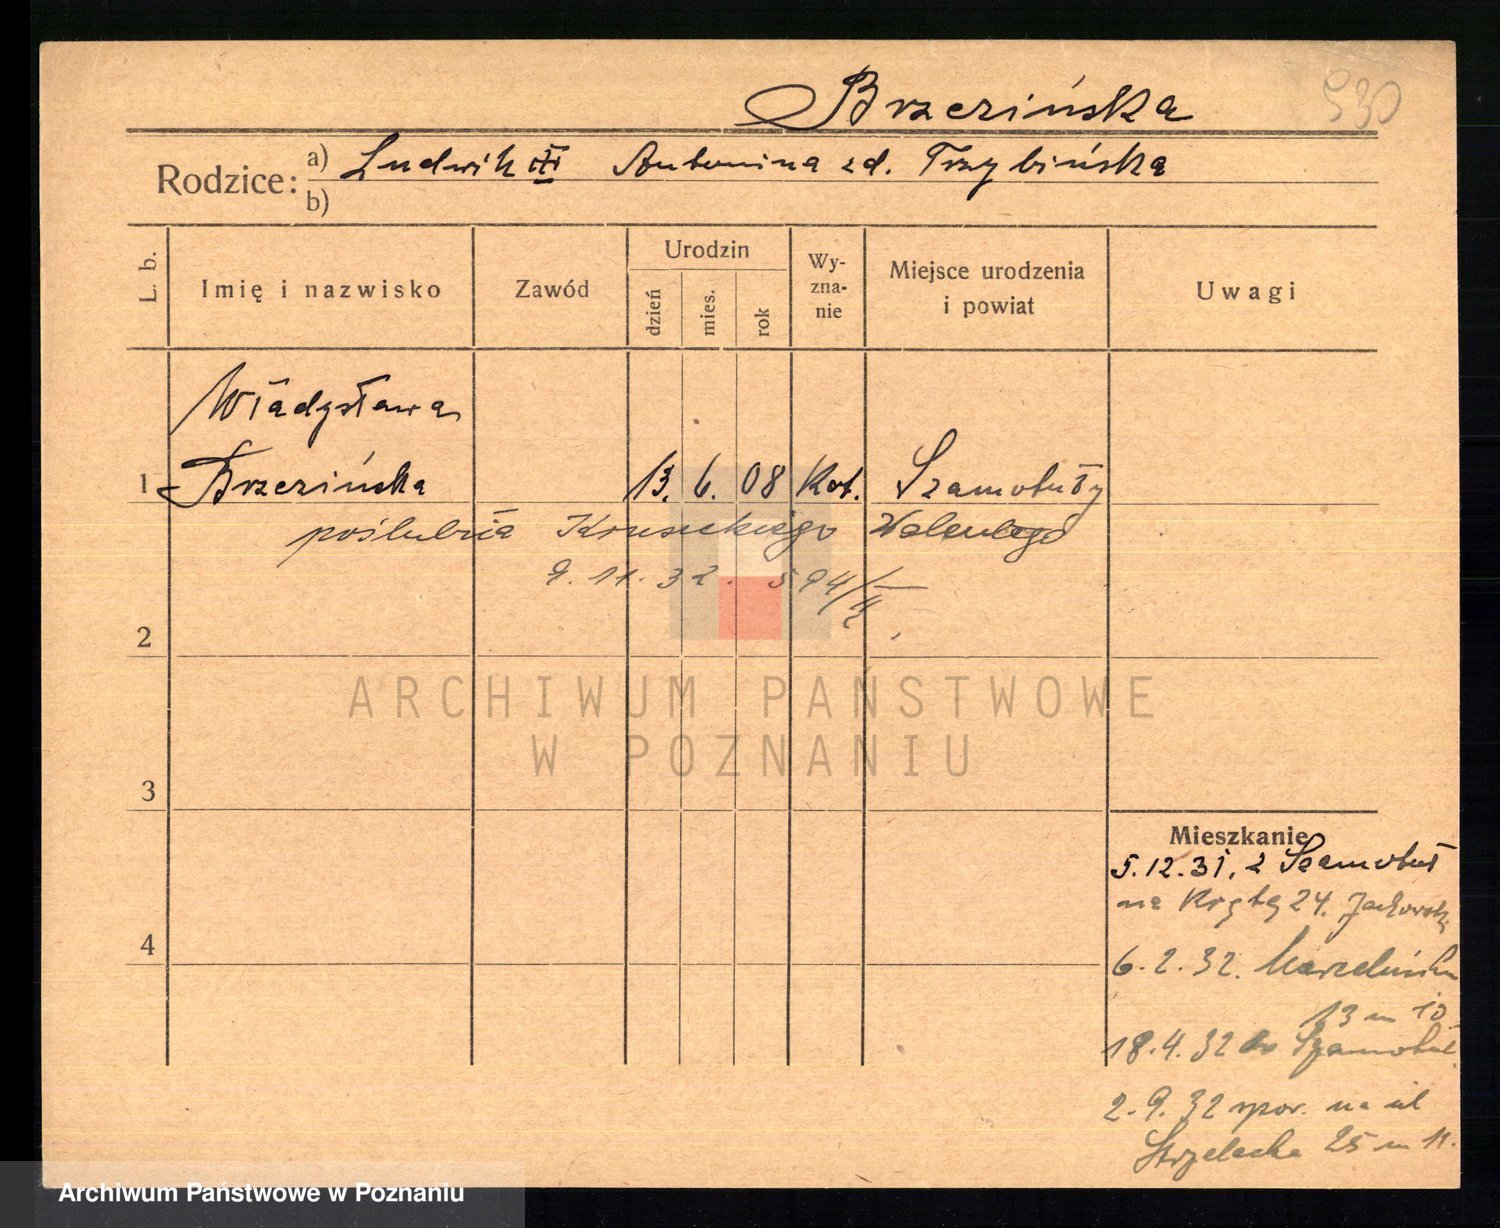 Brzezińska
530
Rodzice: a) Ludwik III Antonina zd. Trzybińska
b)
L. b. Imię i nazwisko Zawód Urodzin dzień mies. rok Wy-zna-nie Miejsce urodzenia i powiat Uwagi
Władysława
1 Brzezińska 13. 6. 08 Kat. Szamotuły
poślubiła Walentego
9. 11. 32. 594/
2
ARCHIWUM PAŃSTWOWE
W POZNANIU
3
Mieszkanie
5.12.31. z Szamotuł
na 24.
4
6.2.32.
13 m 10
18.4.32 do Szamotuł
2.9.32 na ul
Strzelecka 25 m 11.
Archiwum Państwowe w Poznaniu